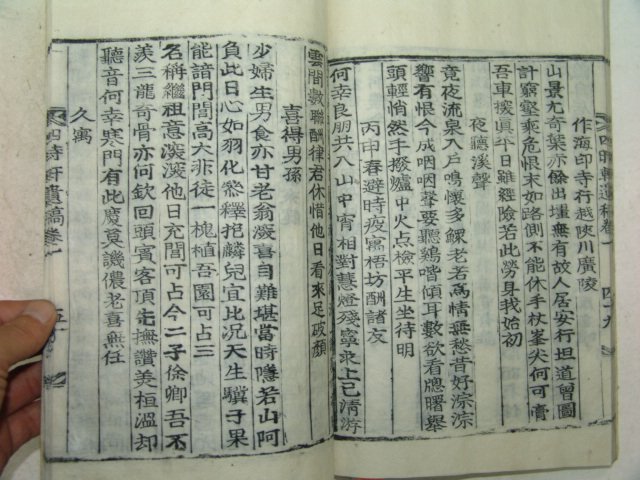 四時軒遺稿卷一 四十九
作海印寺行越陜川廣陵
山景尤奇葉亦餘出壚無有故人居安行坦道曾圖
計窮壑乘危恨末如路側不能休手杖峯尖何可膏
吾車援眞平日雖經險若此勞身我始初
夜聽溪聲
竟夜流泉入戶鳴懷多鰥老若爲情無愁昔好淙淙
響有恨今成咽咽聲要聽鷄喈傾耳數欲看牕曙擧
頭輕悄然手撥爐中火点檢平生坐待明
丙申春避時疫寓梧坊酬諸友
何幸良朋共入山中宵相對慧燈殘寧求上巳淸游
雲間數聯酬律君休惜他日看來足破顔
喜得男孫
少婦生男食亦甘老翁凝喜自難堪當時隱若山阿
負此日心如羽化㕘釋抱麟兒宜比况天生驥子果
能諳門閭高大非徒一槐植吾園可占三
名稱繼祖意深深他日充閭可占今二子徐卿吾不
羨三龍奇骨亦何欽回頭賓客頂先撫讚美桓溫却
聽音何幸寒門有此慶莫譏儂老喜無任
久寓
四時軒遺稿卷一 五十